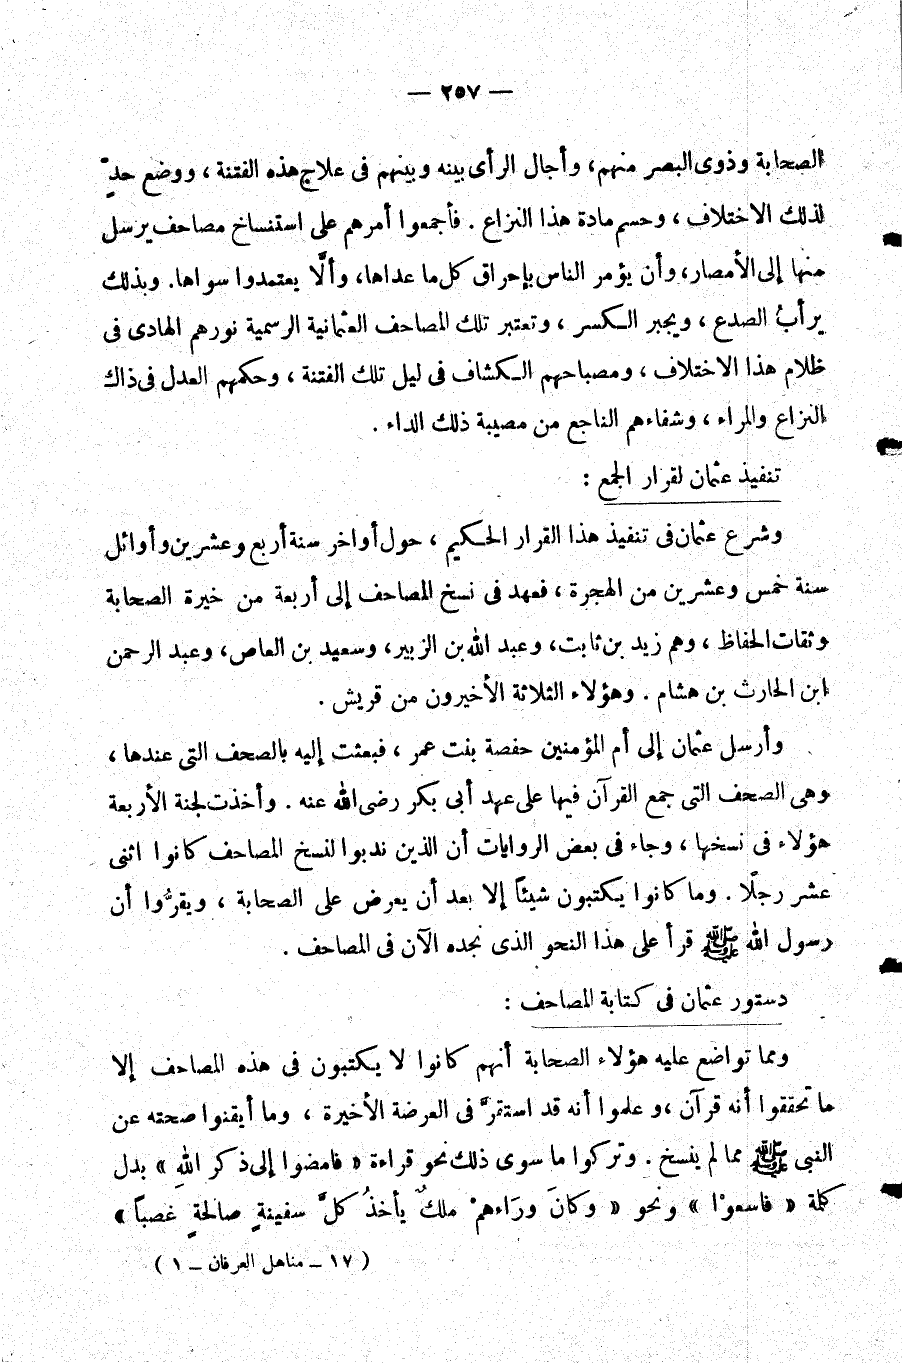 — ٢٥٧ —
الصحابة وذوى البصر منهم، وأجال الرأى بينه وبينهم فى علاج هذه الفتنة ، ووضع حدٍّ
لذلك الاختلاف ، وحسم مادة هذا النزاع . فأجمعوا أمرهم على استنساخ مصاحف يرسل
منها إلى الأمصار، وأن يؤمر الناس بإحراق كل ما عداها، وألَّا يعتمدوا سواها. وبذلك
يرأبُ الصدع ، ويجبر الكسر ، وتعتبر تلك المصاحف العثمانية الرسمية نورهم الهادى فى
ظلام هذا الاختلاف ، ومصباحهم الكشاف فى ليل تلك الفتنة ، وحكمهم العدل فى ذاك
النزاع والمراء ، وشفاءهم الناجع من مصيبة ذلك الداء .
تنفيذ عثمان لقرار الجمع :
وشرع عثمان فى تنفيذ هذا القرار الحكيم ، حول أواخر سنة أربع وعشرين وأوائل
سنة خمس وعشرين من الهجرة ، فعهد فى نسخ المصاحف إلى أربعة من خيرة الصحابة
وثقات الحفاظ ، وهم زيد بن ثابت، وعبد الله بن الزبير، وسعيد بن العاص، وعبد الرحمن
ابن الحارث بن هشام . وهؤلاء الثلاثة الأخيرون من قريش .
وأرسل عثمان إلى أم المؤمنين حفصة بنت عمر ، فبعثت إليه بالصحف التى عندها ،
وهى الصحف التى جمع القرآن فيها على عهد أبى بكر رضى الله عنه . وأخذت لجنة الأربعة
هؤلاء فى نسخها ، وجاء فى بعض الروايات أن الذين ندبوا لنسخ المصاحف كانوا اثنى
عشر رجلًا . وما كانوا يكتبون شيئاً إلا بعد أن يعرض على الصحابة ، ويقرُّوا أن
رسول الله ﷺ قرأ على هذا النحو الذى نجده الآن فى المصاحف .
دستور عثمان فى كتابة المصاحف :
ومما تواضع عليه هؤلاء الصحابة أنهم كانوا لا يكتبون فى هذه المصاحف إلا
ما تحققوا أنه قرآن ،و علموا أنه قد استقرَّ فى العرضة الأخيرة ، وما أيقنوا صحته عن
النبى ﷺ مما لم ينسخ . وتركوا ما سوى ذلك نحو قراءة « فامضوا إلى ذكر اللهِ » بدل
كلمة « فاسعوْا » ونحو « وكانَ ورَاءهمْ ملكٌ يأخذُ كلَّ سفينةٍ صالحةٍ غصباً »
( ١٧ – مناهل العرفان – ١ )